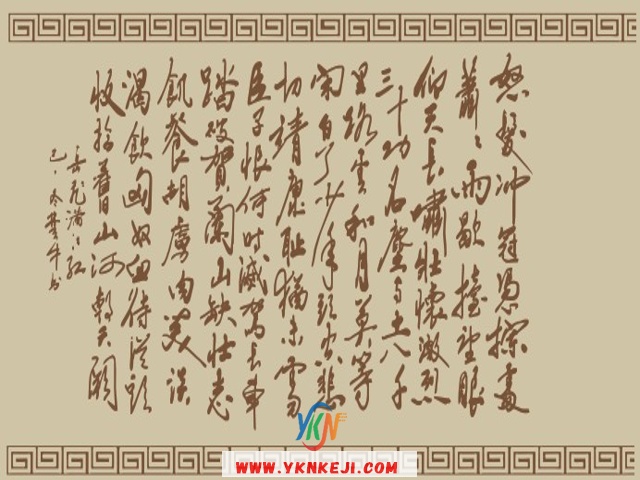 怒髮冲冠憑欄處
蕭々雨歇擡望眼
仰天長嘯壯懷激烈
三十功名塵与土八千
里路雲和月莫等
閑白了少年頭空悲
切靖康恥猶未雪
臣子恨何時滅駕長車
踏破賀蘭山缺壯志
飢餐胡虜肉笑談
渴飲匈奴血待從頭
收拾舊山河朝天闕
岳飛滿江紅
YKN
WWW.YKNKEJI.COM